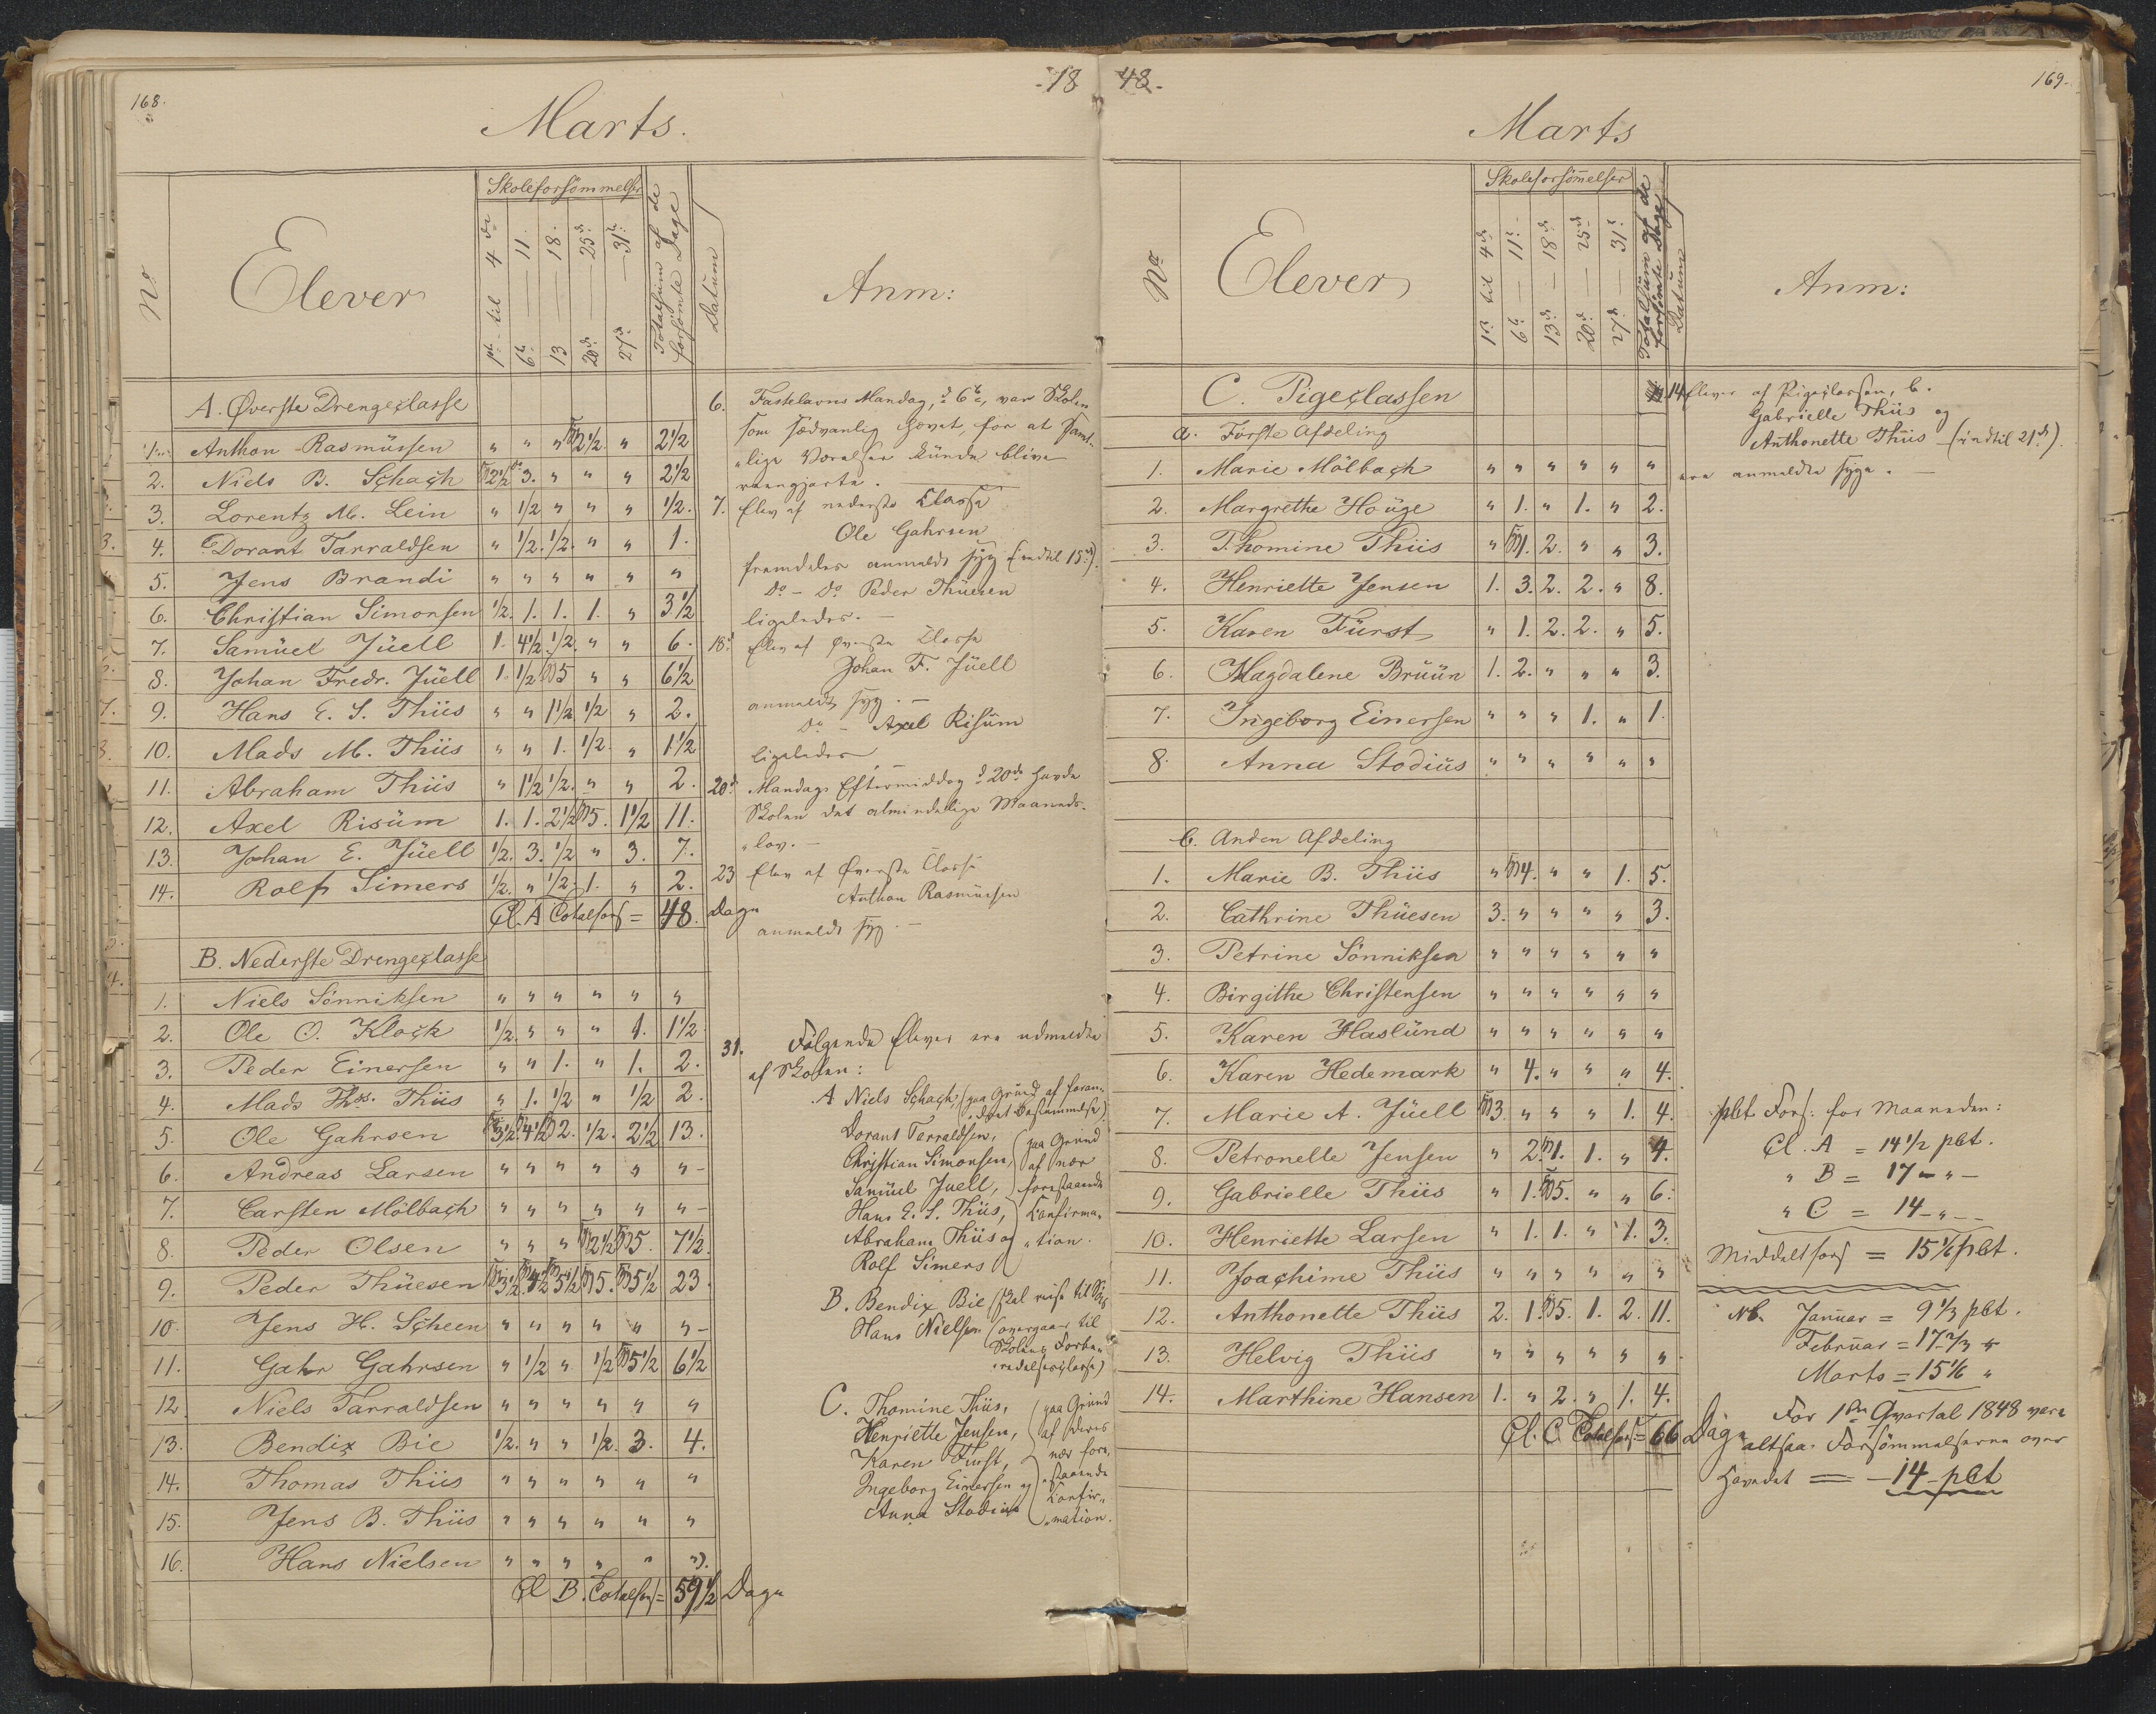 168.
-18
Marts.
No
Elever
Skoleforsömmelser
1ste til 4de
6te — 11.
13 — 18.
20de — 25de
27de — 31te
Totalsum af de
forsömte Dage
Datum
Anm:
A. Øverste Drengeclasse
1. Anthon Rasmüssen " " " S 2 1/2 " 2 1/2
2. Niels B. Schach S 2 1/2 3. " " " 2 1/2
3. Lorentz M. Lein " 1/2 " " " 1/2.
4. Dorant Tarraldsen " 1/2. 1/2. " " 1.
5. Jens Brandi " " " " " "
6. Christian Simonsen 1/2. 1. 1. 1. " 3 1/2
7. Samüel Jüell 1. 4 1/2. 1/2. " " 6.
8. Johan Fredr. Jüell 1. 1/2 S 5 " " 6 1/2
9. Hans E. S. Thiis " " 1 1/2 1/2 " 2.
10. Mads M. Thiis " " 1. 1/2. " 1 1/2
11. Abraham Thiis " 1 1/2 1/2. " " 2.
12. Axel Risüm 1. 1. 2 1/2 S 5. 1 1/2 11.
13. Johan E. Jüell 1/2. 3. 1/2 " 3. 7.
14. Rolf Simers 1/2. " 1/2. 1. " 2.
Cl. A Totalfors = 48. Dage
B. Nederste Drengeclasse
1. Niels Sönniksen " " " " " "
2. Ole O. Klock 1/2. " " " 1. 1 1/2
3. Peder Einersen " " 1. " 1. 2.
4. Mads Ths. Thiis " 1. 1/2 " 1/2 2.
5. Ole Gahrsen S 3 1/2 S 4 1/2 S 2. 1/2. 2 1/2 13.
6. Andreas Larsen " " " " " " -
7. Carsten Mölbach " " " " " " -
8. Peder Olsen " " " S 2 1/2 S 5. 7 1/2.
9. Peder Thüesen S 3 1/2. S 4 1/2 S 5 1/2 S 5. S 5 1/2 23.
10. Jens H. Scheen " " " " " " -
11. Gahr Gahrsen " 1/2 " 1/2 S 5 1/2 6 1/2
12. Niels Tarraldsen " " " " " "
13. Bendix Bie 1/2. " " 1/2. 3. 4.
14. Thomas Thiis " " " " " "
15. Jens B. Thiis " " " " " "
16. Hans Nielsen " " " " " ").
Cl B. Totalfors = 59 1/2 Dage
6. Fastelavns Mandag, d 6te, var Skolen
som sædvanlig hævet, for at samt-
"lige Værelser künde blive
reengjorte. —
7. Elev af nederste Classe
Ole Gahrsen
fremdeles anmeldt syg (indtil 15de).
Do - Do Peder Thüesen
ligeledes. —
18d Elev af Øverste Classe
Johan F. Jüell
anmeldt syg. —
Do - Axel Risüm
ligeledes. —
20d Mandags Eftermiddag d 20de havde
Skolen det almindelige Maaneds-
"lov. —
23 Elev af Øverste Classe
Anthon Rasmüssen
anmeldt syg. —
31. Følgende Elever ere udmeldte
af Skolen:
A Niels Schach, (paa Grund af foran-
Dorant Tarraldsen,
Christian Simonsen,
Samüel Juell,
Hans E. S. Thiis,
Abraham Thiis og
Rolf Simers
(paa Grund
af nær
forestaaende
Confirma-
"tion.
B. Bendix Bie (skal reise til Søes
Hans Nielsen (overgaaer til
Skolens Forbe-
redelsesclasse)
C. Thomine Thiis,
Henriette Jensen,
Karen Fürst,
Ingeborg Einersen og
Anna Stodius
(paa Grund
af deres
nær fore,
"staaende
Confir-
"mation.
48.-
169.
Marts
No
Elever
Skoleforsömmelser
1ste til 4de
6te — 11te
13de — 18de
20de — 25de
27de — 31te
Totalsüm af de
forsömte Dage
Datum
Anm:
C. Pigeclassen
a. Förste Afdeling
1. Marie Mölbach " " " " " "
2. Margrethe Houge " 1. " 1. " 2.
3. Thomine Thiis " S 1. 2. " " 3.
4. Henriette Jensen 1. 3. 2. 2. " 8.
5. Karen Fürst " 1. 2. 2. " 5.
6. Magdalene Brüün 1. 2. " " " 3.
7. Ingeborg Einersen " " " 1. " 1.
8. Anna Stodius " " " " " "
b. Anden Afdeling
1. Marie B. Thiis " S 4. " " 1. 5.
2. Cathrine Thüesen 3. " " " " 3.
3. Petrine Sönniksen " " " " " "
4. Birgithe Christensen " " " " " "
5. Karen Haslünd " " " " " "
6. Karen Hedemark " 4. " " " 4.
7. Marie A. Jüell S 3 " " " 1. 4.
8. Petronelle Jensen " 2. S 1. 1. " 4.
9. Gabrielle Thiis " 1. S 5. " " 6.
10. Henriette Larsen " 1. 1. " 1. 3.
11. Joachime Thiis " " " " " "
12. Anthonette Thiis 2. 1. S 5. 1. 2. 11.
13. Helvig Thiis " " " " " "
14. Marthine Hansen 1. " 2. " 1. 4.
Cl. C. Totalfors = 66 Dage
14 Elever af Pigeclassen, b.
Gabrielle Thiis og
Anthonette Thiis - (indtil 21de).
ere anmeldte syge. —
pCt Fors: for Maaneden:
Cl. A = 14 1/2 pCt.
" B = 17 - " -
" C = 14 - " -
Middeltfors = 15 1/6 pCt.
Nb. Januar = 9 1/3 pCt.
Februar = 17 2/3 "
Marts = 15 1/6 "
For 1ste Qvartal 1848 vare
altsaa Forsömmelserne over
Hovedet = - 14 - pCt